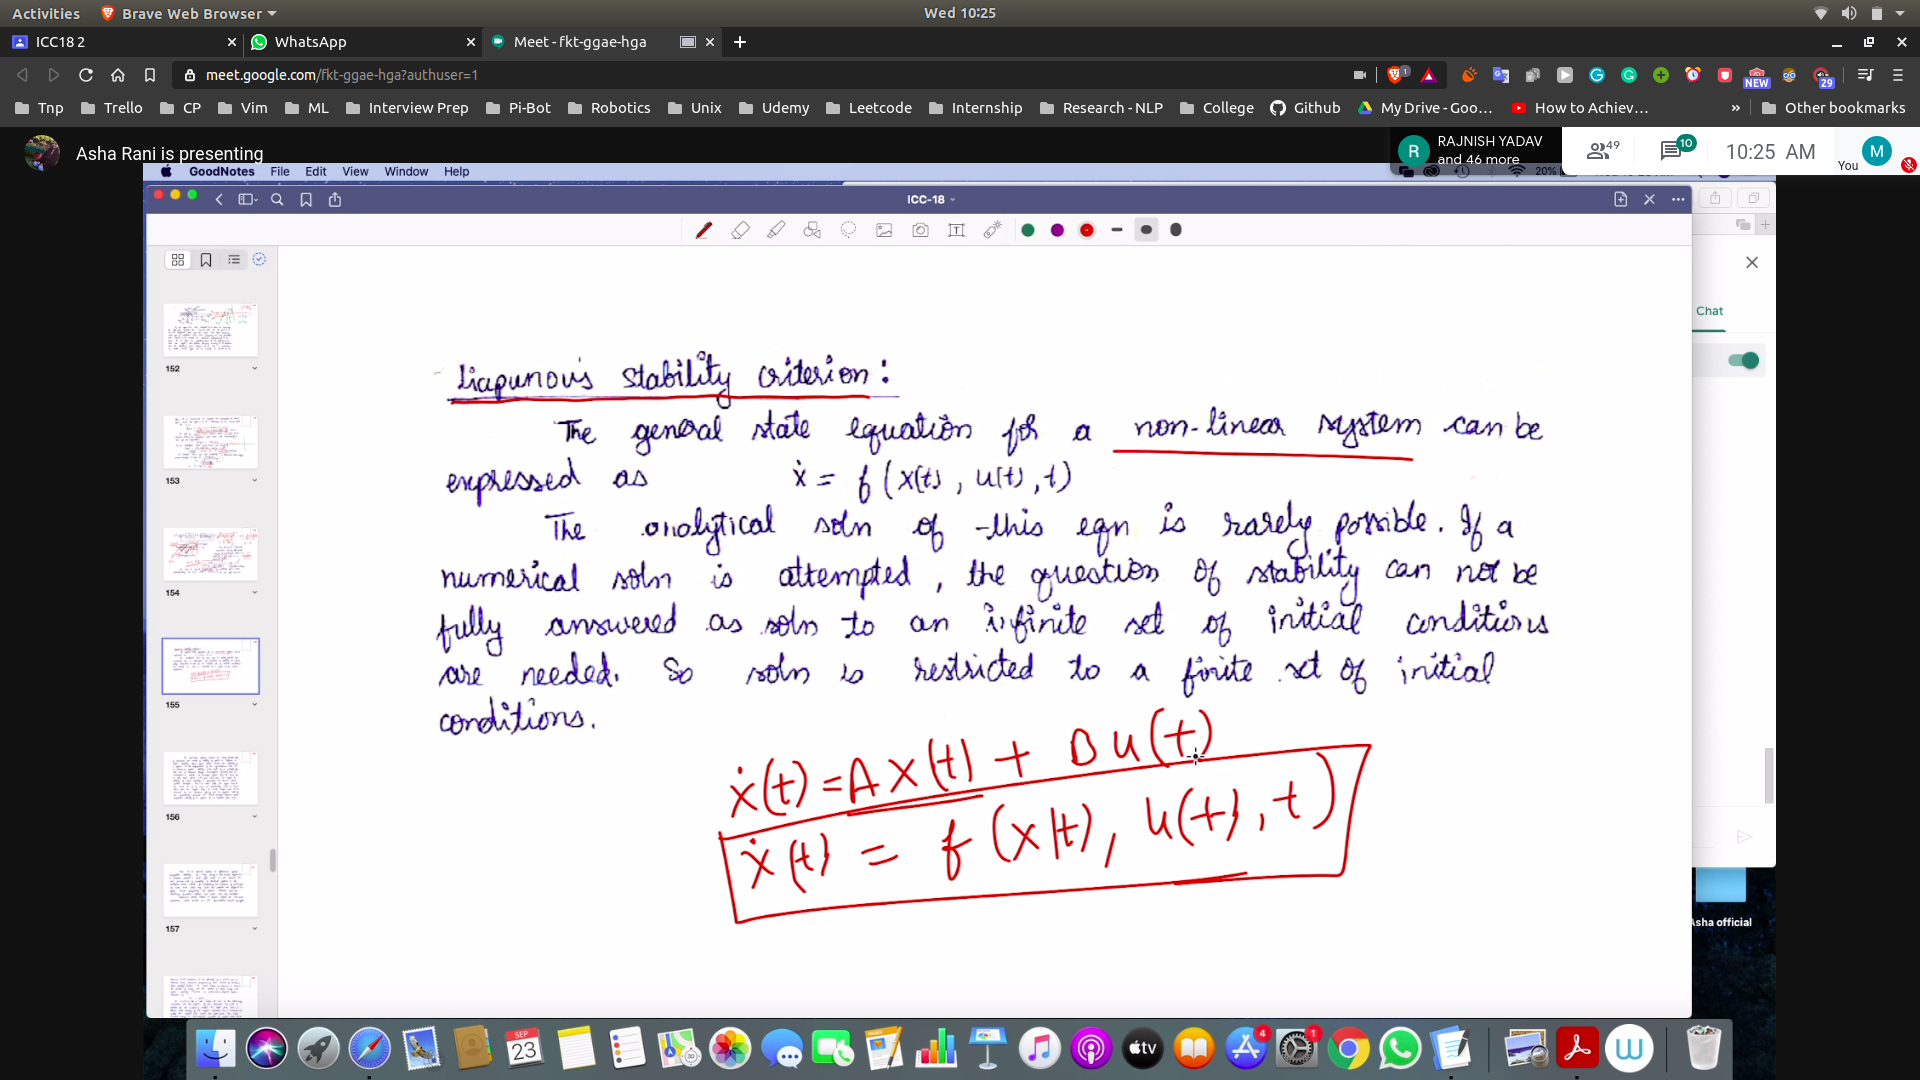 Activities Brave Web Browser Wed 10:25
ICC18 2 WhatsApp Meet - fkt-ggae-hga
meet.google.com/fkt-ggae-hga?authuser=1
1 NEW 29
Tnp Trello CP Vim ML Interview Prep Pi-Bot Robotics Unix Udemy Leetcode Internship Research - NLP College Github My Drive - Goo... How to Achiev... » Other bookmarks
Asha Rani is presenting
R RAJNISH YADAV and 46 more
49 10 10:25 AM You M
GoodNotes File Edit View Window Help 20%
ICC-18
Chat
152
153
154
155
156
157
Liapunov's stability criterion :
The general state equation for a non-linear system can be
expressed as ẋ = f (x(t) , u(t) , t)
The analytical soln of this eqn is rarely possible. If a
numerical soln is attempted, the question of stability can not be
fully answered as soln to an infinite set of initial conditions
are needed. So soln is restricted to a finite set of initial
conditions.
ẋ(t) = A x(t) + B u(t)
ẋ(t) = f (x(t), u(t), t)
Asha official
SEP
23
4
1
tv
W